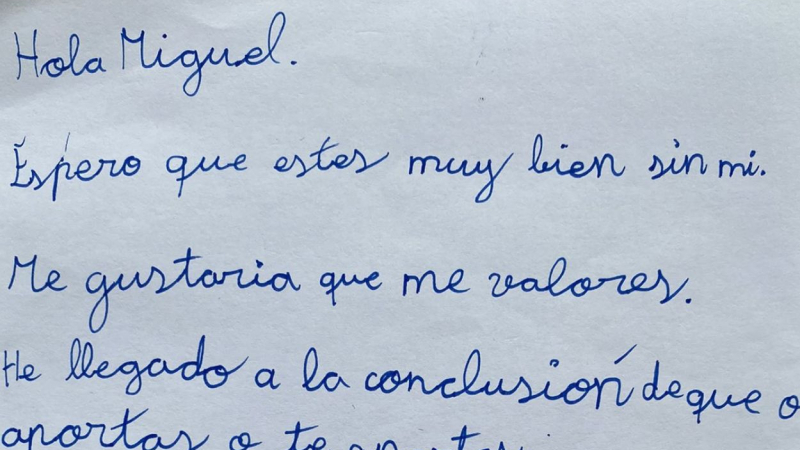 Hola Miguel.
Espero que estes muy bien sin mi.
Me gustaria que me valores.
He llegado a la conclusión de que o
aportas o te apartas.